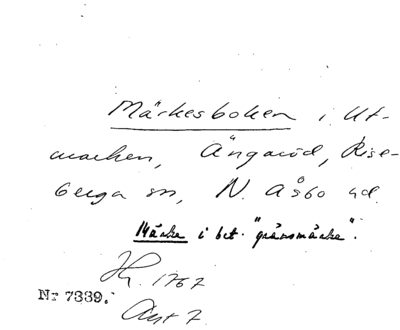 Märkesboken i Ut-
marken, Ängaröd, Rise-
berga sn, N. Åsbo hd.
Märke i bet. "gränsmärke".
1767
Nr 7339.